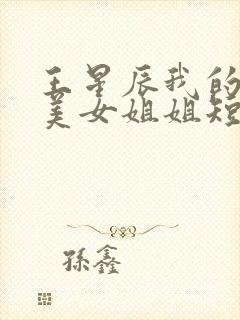 王星辰我的
美女姐姐短
孫鑫